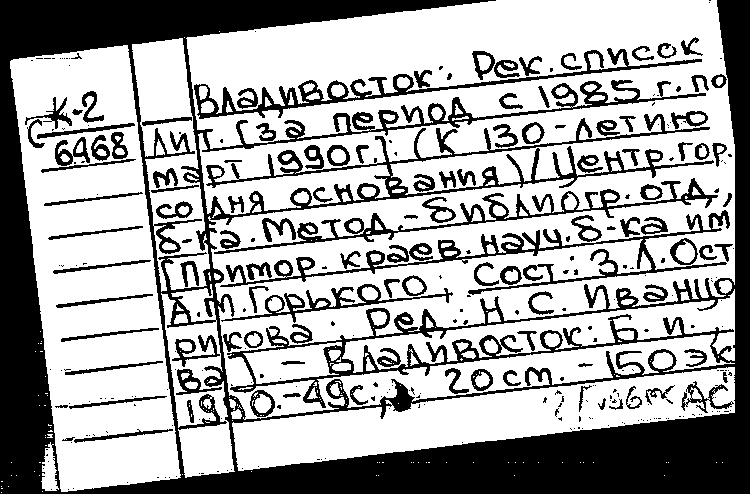 К-2
С 6468
Владивосток: Рек. список
лит. [за период с 1985 г. по
март 1990г.]: (К 130-летию
со дня основания)/Центр.гор.
б-ка. Метод.-библиогр. отд.,
[Примор. краев. науч. б-ка им
А.М.Горького; Сост.: З.Л.Ост
рикова; Ред.: Н.С. Иванцо
ва]. - Владивосток: Б.и.,
1990.-49с.; 20 см. - 150 эк
АС